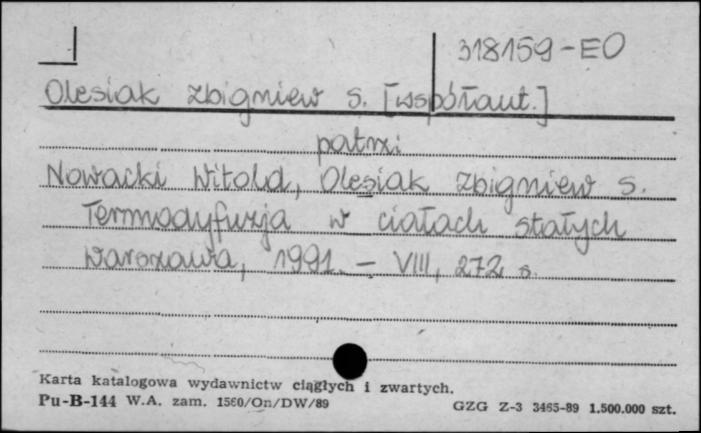 318159-EO
Olesiak Zbigniew S. [współaut.]
patrz:
Nowacki Witold, Olesiak Zbigniew S.
Termodyfuzja w ciałach stałych
Warszawa, 1991. – VIII, 272 s.
Karta katalogowa wydawnictw ciągłych i zwartych.
Pu-B-144 W.A. zam. 1560/On/DW/89 GZG Z-3 3465-89 1.500.000 szt.